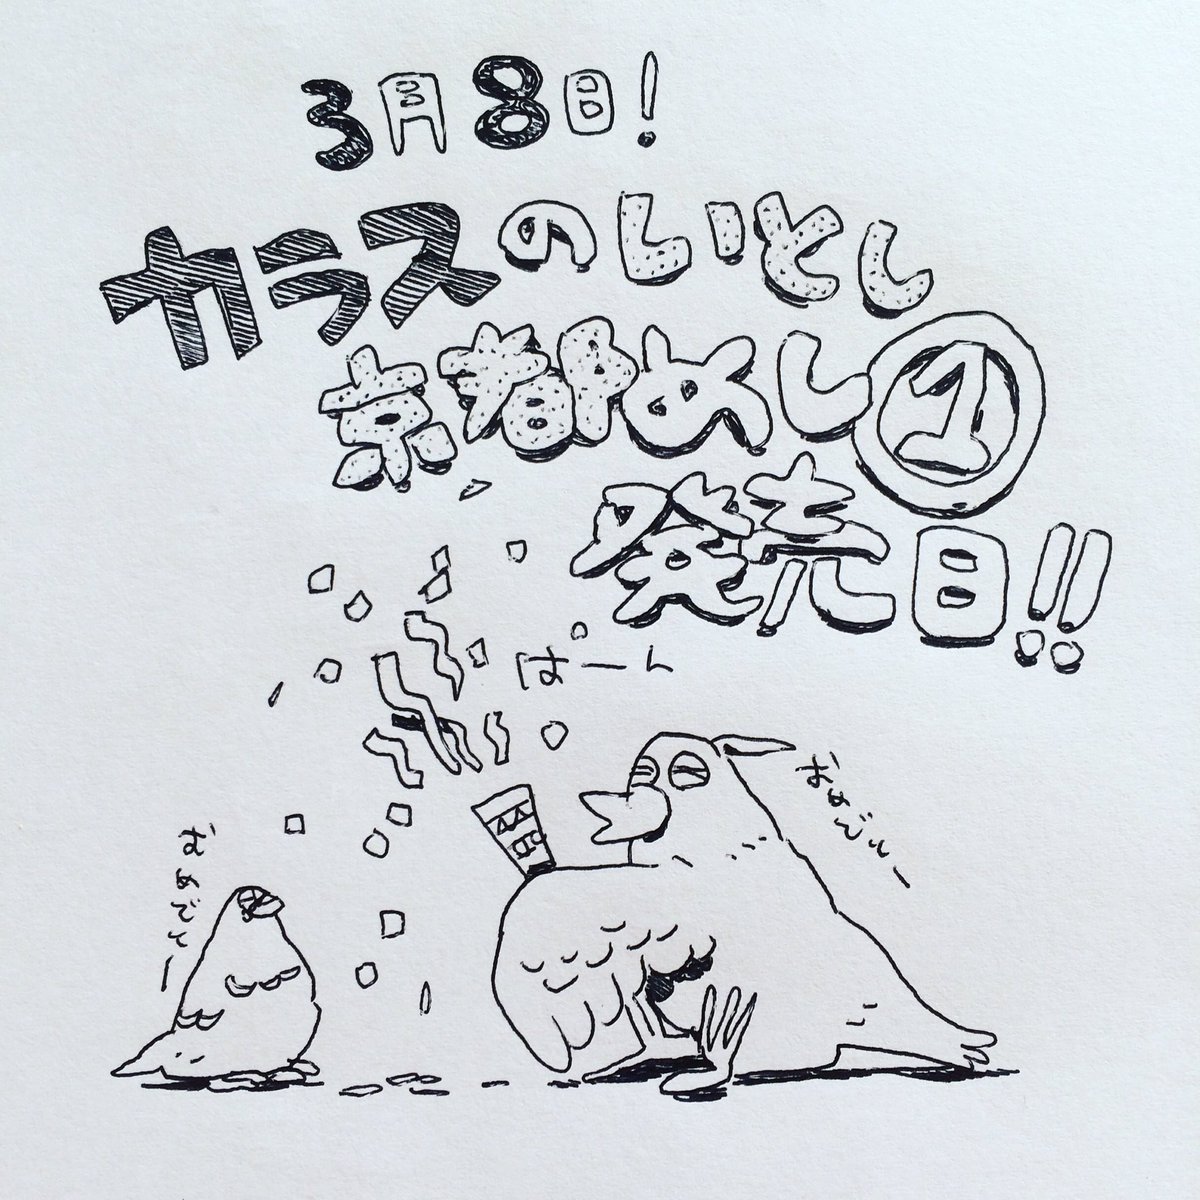 3月8日!
カラスのいとし
京都めし①
発売日!!
ぱーん
おめでとー
おめでとー